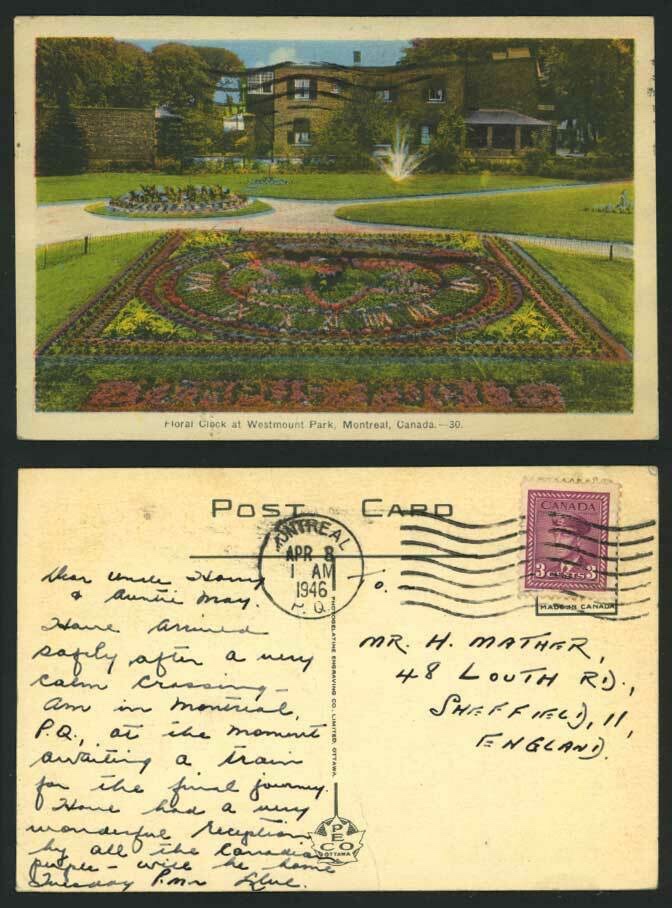 Floral Clock at Westmount Park, Montreal, Canada.—30.
POST CARD
MONTREAL
APR 8
1 AM
1946
P.Q.
CANADA
3 CENTS 3
MADE IN CANADA
Dear Uncle Harry
& Auntie May.
Have arrived
safely after a very
calm crossing –
Am in Montreal,
P.Q., at the moment
awaiting a train
for the final journey.
Have had a very
wonderful reception
by all the Canadian
people – will be home
Tuesday P.M.
To.
MR. H. MATHER,
48 LOUTH RD.,
SHEFFIELD, 11,
ENGLAND.
PHOTOGELATINE ENGRAVING CO. LIMITED, OTTAWA.
PECO
OTTAWA